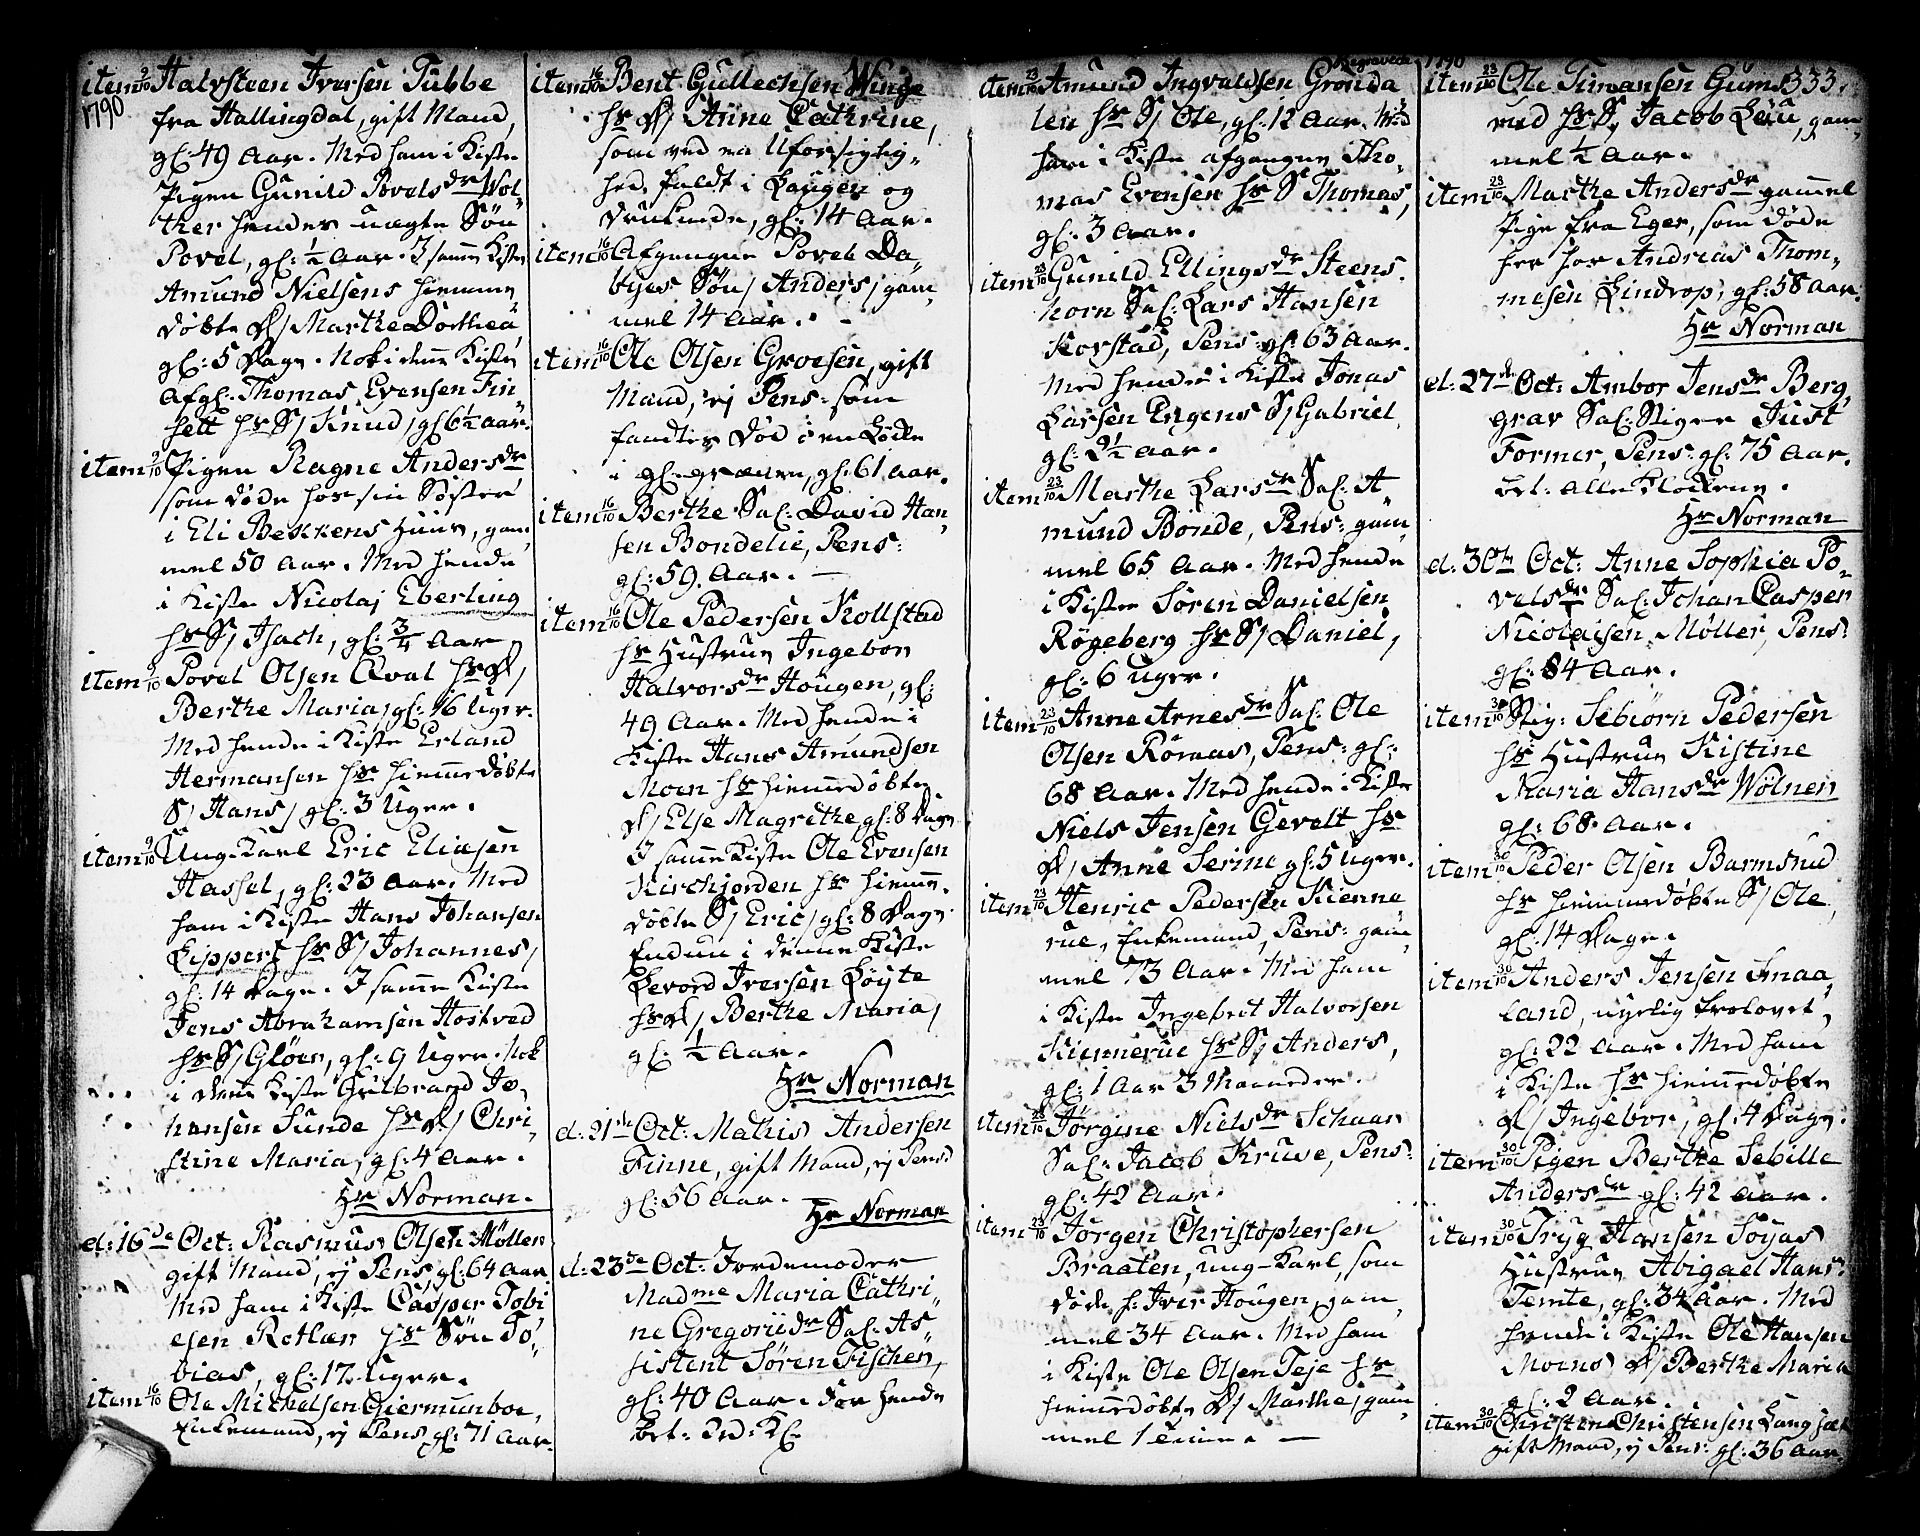 item 9/10 Halvsteen Iversen Tubbe
1790
fra Hallingdal, gift Mand,
gl: 49 Aar. Med ham i Kiste
Pigen Gunild Povelsdr Wol-
ther hendes uægte Søn
Povel, gl: ½ Aar. I samme Kiste
Amund Nielsens hiemme
døbte D/ Marthe Dorthea
gl: 5 Dage. Nok i denne Kiste
Afgl: Thomas Evensen Fin-
sett hs S/ Knud, gl 6½ Aar.
item 9/10 Pigen Ragne Andersdr
som døde hos sin Søster
i Eli Bekkens Huus, gam-
mel 50 Aar. Med hende
i Kiste Nicolaj Eberling
hs S/ Isach, gl: ¾ Aar
item 9/10 Povel Olsen Qval hs D/
Berthe Maria, gl: 16 Uger.
Med hende i Kiste Erland
Hermansen hs hiemmedøbte
S/ Hans, gl: 3 Uger.
item 9/10 Ung-Karl Eric Eliasen
Hassel, gl: 23 Aar. Med
ham i Kiste Hans Johansen
Lippert hs S/ Johannes,
gl: 14 Dage. I samme Kiste
Jens Abrahamsen Hostved
hs S/ Gløer, gl: 9 Uger. Nok
i denne Kiste Gulbrand Jo-
hansen Sunde hs D/ Chri-
stine Maria, gl: 4 Aar.
Hr Norman.
d: 16de Oct: Rasmus Olsen Møllen
gift Mand, ej Pens, gl: 64 Aar
Med ham i Kiste Casper Tobi
esen Rotlær hs Søn To-
bias, gl: 17 Uger.
item 16/10 Ole Michelsen Giermunboe,
Enkemand, ej Pens, gl: 71 Aar.
item 16/10 Bent Gullechsen Winge
hs D/ Anne Cathrine,
som ved en Uforsigtig-
hed faldt i Laugen og
druknede, gl: 14 Aar.
item 16/10 Afgangne Povel Da-
byes Søn/ Anders, gam-
mel 14 Aar. -
item 16/10 Ole Olsen Groesen, gift
Mand, ej Pens: som
fandtes død i en Lade
i gl. græven, gl: 61 Aar.
item 16/10 Berthe Sal: David Han-
sen Bondelie, Pens:
gl: 59. Aar. —
item 16/10 Ole Pedersen Kollstad
hs Hustrue Ingebor
Halvorsdr Hougen, gl:
49 Aar. Med hende i
Kiste Hans Amundsen
Moen hs hiemmedøbte
D/ Else Magrethe gl: 8 Dage
I samme Kiste Ole Evensen
Kirchjorden hs hiemme-
døbte S/ Eric, gl: 8 Dage.
Endnu i denne Kiste
Levord Iversen Løyte
hs D/ Berthe Maria,
gl: ½ Aar.
Hr Norman
d: 21de Oct: Mathis Andersen
Finne, gift Mand, ej Pens:
gl: 56 Aar.
Hr Norman
d: 23de Oct: Jordemoder
Madme Maria Cathri-
ne Gregoriidr Sal: As-
sistent Søren Fischer,
gl: 40 Aar. For hende
bet: 2d. Kl
Begravede 1790
item 23/10 Amund Ingvaldsen Grønda
len hs S/ Ole, gl: 12 Aar. Med
ham i Kiste afgangne Tho-
mas Evensen hs S Thomas,
gl: 3 Aar.
item 23/10 Gunild Ellingsdr Steens-
horn Sal: Lars Hansen
Korstad, Pens: gl: 63 Aar.
Med hende i Kiste Jonas
Larsen Engens S/ Gabriel
gl: 2½ Aar.
item 23/10 Marthe Larsdr Sal: A-
mund Bonde, Pens: gam-
mel 65 Aar. Med hende
i Kiste Søren Danielsen
Røgeberg hs S/ Daniel,
gl: 6 Uger.
item 23/10 Anne Arnesdr Sal: Ole
Olsen Rømas, Pens: gl:
68 Aar. Med hende i Kiste
Niels Jensen Gevelt hs
D/ Anne Serine gl: 5 Uger.
item 23/10 Henric Pedersen Kienne
rue, Enkemand, Pens: gam-
mel 73 Aar. Med ham
i Kiste Ingebret Halvorsen
Kiennerue hs S/ Anders,
gl: 1 Aar 3 Maaneder.
item 23/10 Jørgine Nielsdr Schaar
Sal: Jacob Kruse, Pens:
gl: 42 Aar.
item 23/10 Jørgen Christophersen
Braaten, ung-Karl, som
døde h. Iver Hougen, gam-
mel 34 Aar. Med ham
i Kiste Ole Olsen Teje hs
hiemmedøbte D/ Marthe, gam-
mel 1 Time. —
item 23/10 Ole Simansen Gums 333.
rud hs S, Jacob Lau, gam-
mel ½ Aar.
item 23/10 Marthe Andersdr gammel
Pige fra Eger, som døde
her hos Andreas Thom-
mesen Lindrop, gl: 58 Aar.
Hr Norman
d: 27de Oct: Ambor Jensdr Berg-
grav Sal: Stiger Just
Former, Pens: gl: 75 Aar.
bet: alle Klokkene.
Hr Norman
d: 30th Oct: Anne Sophia Po-
velsdr Sal: Johan Casper
Nicolaisen Møller, Pens:
gl: 84 Aar.
item 30/10 Stig: Sebiørn Pedersen
hs Hustrue Kistine
Maria Hansdr Wølner
gl: 68 Aar.
item 30/10 Peder Olsen Barmsrud
hs hiemmedøbte S/ Ole,
gl: 14 Dage.
item 30/10 Anders Jensen Smaa-
land, nyelig trolovet,
gl: 22 Aar. Med ham
i Kiste hs hiemmedøbte
D/ Ingebor, gl: 4 Dage.
item 30/10 Pigen Berthe Sebille
Andersdr gl: 42 Aar.
item 30/10 Tryg Hansen Soyas
Hustrue Abigael Hans:
Temte, gl: 34 Aar. Med
hende i Kiste Ole Hansen
Moens D/ Berthe Maria
gl: 2 Aar.
item 30/10 Christen Christensen Langsæt
gift Mand, ej Pens: gl: 36 Aar.